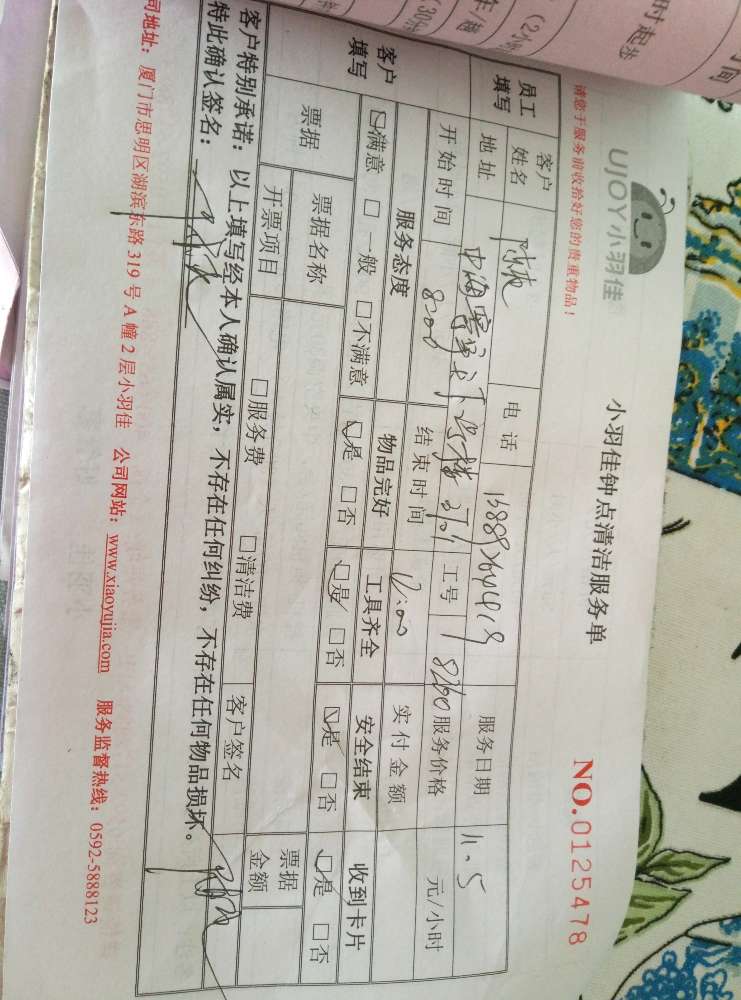 UJOY小羽佳
小羽佳钟点清洁服务单
请您于服务前收拾好您的贵重物品！
NO.0125478
员工填写
客户姓名
电话
服务日期 11.5
地址
工号 8260
服务价格 元/小时
开始时间 8:00
结束时间
实付金额
客户填写
服务态度 物品完好 工具齐全 安全结束 收到卡片
☑满意 □一般 □不满意 ☑是 □否 ☑是 □否 ☑是 □否 ☑是 □否
票据
票据名称
票据金额
开票项目 □服务费 □清洁费 客户签名
客户特别承诺：以上填写经本人确认属实，不存在任何纠纷，不存在任何物品损坏。
特此确认签名：
司地址：厦门市思明区湖滨东路 319 号 A 幢 2 层小羽佳 公司网站：www.xiaoyujia.com 服务监督热线：0592-5888123